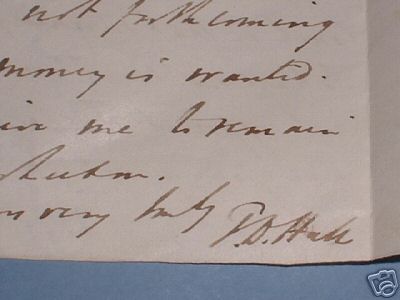 not forthcoming
money is wanted.
me to remain
very truly
T.D. Hall